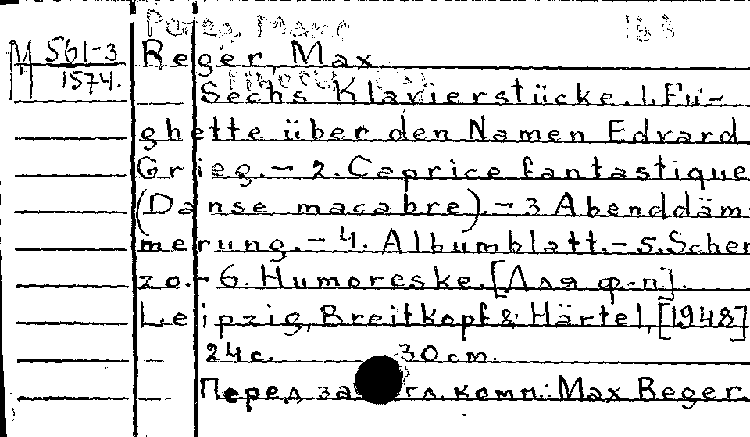 Регер, Макс
М 561-3
1574.
Reger, Max
Sechs Klavierstücke. 1. Fu-
ghette über den Namen Edvard
Grieg. — 2. Caprice fantastique
(Danse macabre). — 3 Abenddäm-
merung. — 4. Albumblatt. — 5. Scher-
zo. — 6. Humoreske. [Для ф-п].
Leipzig, Breitkopf & Härtel, [1948]
24 с. 30 cm.
Перед загл. комп.: Max Reger.